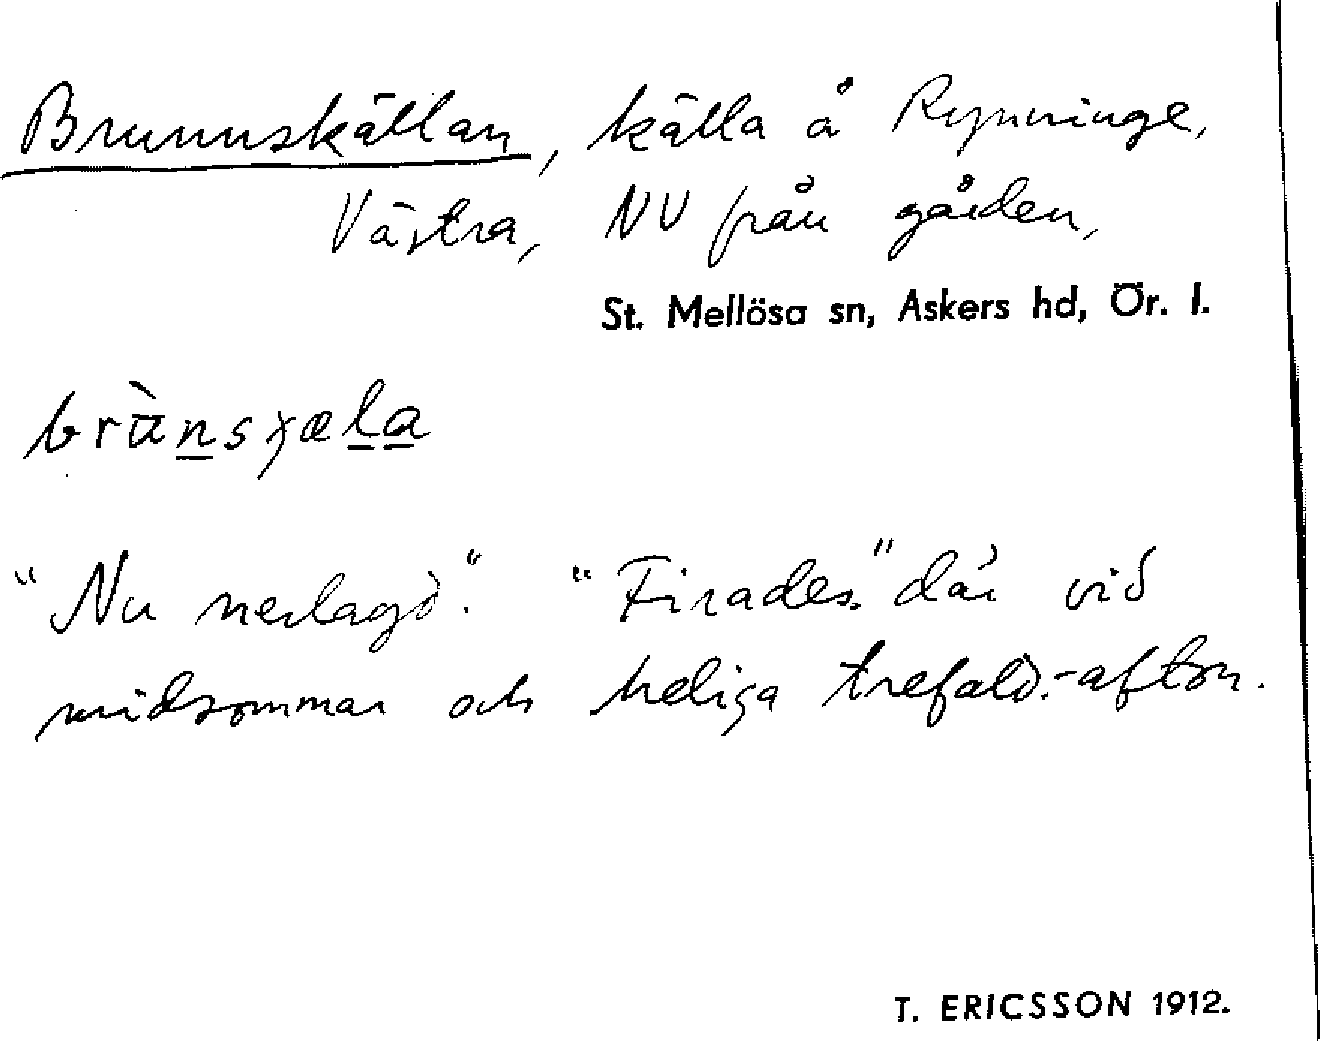 Brunnskällan, källa å Rynninge,
Västra, NV från gården,
St. Mellösa sn, Askers hd, Ör. l.
"Nu nerlagd." "Firades" där vid
midsommar och heliga trefald.-afton.
T. ERICSSON 1912.